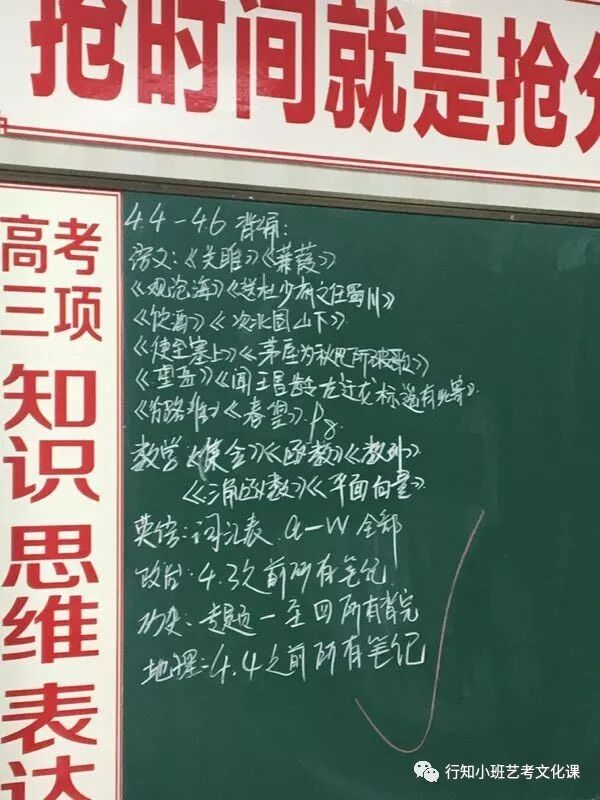 抢时间就是抢分
高考
三项
知识
思维
表达
4.4-4.6 背诵:
语文:《关雎》《蒹葭》
《观沧海》《送杜少府之任蜀川》
《饮酒》《次北固山下》
《使至塞上》《茅屋为秋风所破歌》
《望岳》《闻王昌龄左迁龙标遥有此寄》
《行路难》《春望》
数学《集合》《函数》《数列》
《三角函数》《平面向量》
英语:词汇表 a-w 全部
政治:4.3次前所有笔记
历史:专题一至四所有背完
地理:4.4之前所有笔记
行知小班艺考文化课